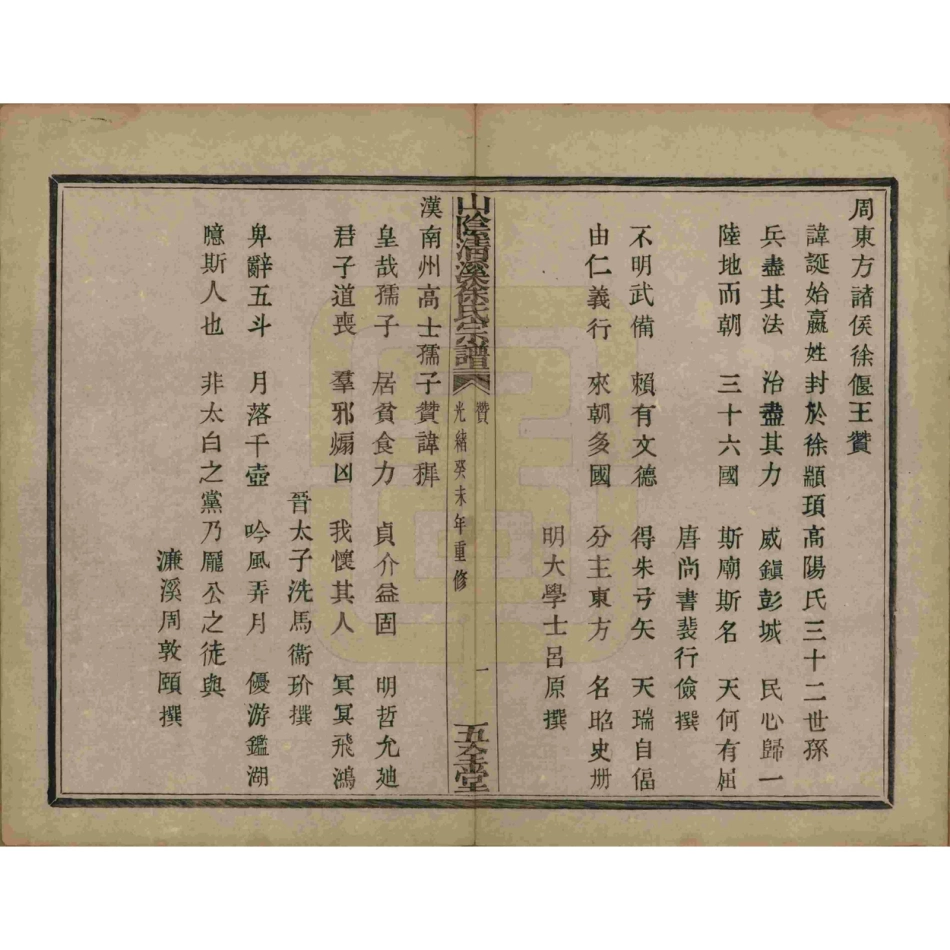 周東方諸侯徐偃王贊
諱誕始嬴姓封於徐顓頊高陽氏三十二世孫
兵盡其法　治盡其力　威鎮彭城　民心歸一
陸地而朝　三十六國　斯廟斯名　天何有屈
唐尚書裴行儉撰
不明武備　賴有文德　得朱弓矢　天瑞自偪
由仁義行　來朝多國　分主東方　名昭史册
明大學士呂原撰
山陰清溪徐氏宗譜　贊　光緒癸未年重修　一　五全堂
漢南州高士孺子贊諱穉
皇哉孺子　居貧食力　貞介益固　明哲允廸
君子道喪　羣邪煽凶　我懷其人　冥冥飛鴻
晉太子洗馬衞玠撰
卑辭五斗　月落千壺　吟風弄月　優游鑑湖
臆斯人也　非太白之黨乃龐公之徒與
濂溪周敦頤撰